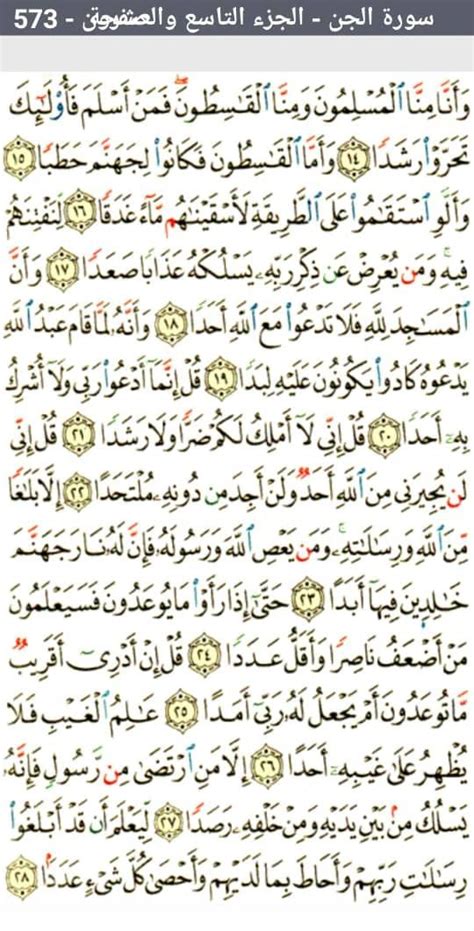 سورة الجن - الجزء التاسع والعشرون - صفحة 573
وَأَنَّا مِنَّا ٱلْمُسْلِمُونَ وَمِنَّا ٱلْقَٰسِطُونَ ۖ فَمَنْ أَسْلَمَ فَأُو۟لَٰٓئِكَ
تَحَرَّوْا۟ رَشَدًا ١٤ وَأَمَّا ٱلْقَٰسِطُونَ فَكَانُوا۟ لِجَهَنَّمَ حَطَبًا ١٥
وَأَلَّوِ ٱسْتَقَٰمُوا۟ عَلَى ٱلطَّرِيقَةِ لَأَسْقَيْنَٰهُم مَّآءً غَدَقًا ١٦ لِّنَفْتِنَهُمْ
فِيهِ ۚ وَمَن يُعْرِضْ عَن ذِكْرِ رَبِّهِۦ يَسْلُكْهُ عَذَابًا صَعَدًا ١٧ وَأَنَّ
ٱلْمَسَٰجِدَ لِلَّهِ فَلَا تَدْعُوا۟ مَعَ ٱللَّهِ أَحَدًا ١٨ وَأَنَّهُۥ لَمَّا قَامَ عَبْدُ ٱللَّهِ
يَدْعُوهُ كَادُوا۟ يَكُونُونَ عَلَيْهِ لِبَدًا ١٩ قُلْ إِنَّمَآ أَدْعُوا۟ رَبِّى وَلَآ أُشْرِكُ
بِهِۦٓ أَحَدًا ٢٠ قُلْ إِنِّى لَآ أَمْلِكُ لَكُمْ ضَرًّا وَلَا رَشَدًا ٢١ قُلْ إِنِّى
لَن يُجِيرَنِى مِنَ ٱللَّهِ أَحَدٌ وَلَنْ أَجِدَ مِن دُونِهِۦ مُلْتَحَدًا ٢٢ إِلَّا بَلَٰغًا
مِّنَ ٱللَّهِ وَرِسَٰلَٰتِهِۦ ۚ وَمَن يَعْصِ ٱللَّهَ وَرَسُولَهُۥ فَإِنَّ لَهُۥ نَارَ جَهَنَّمَ
خَٰلِدِينَ فِيهَآ أَبَدًا ٢٣ حَتَّىٰٓ إِذَا رَأَوْا۟ مَا يُوعَدُونَ فَسَيَعْلَمُونَ
مَنْ أَضْعَفُ نَاصِرًا وَأَقَلُّ عَدَدًا ٢٤ قُلْ إِنْ أَدْرِىٓ أَقَرِيبٌ
مَّا تُوعَدُونَ أَمْ يَجْعَلُ لَهُۥ رَبِّىٓ أَمَدًا ٢٥ عَٰلِمُ ٱلْغَيْبِ فَلَا
يُظْهِرُ عَلَىٰ غَيْبِهِۦٓ أَحَدًا ٢٦ إِلَّا مَنِ ٱرْتَضَىٰ مِن رَّسُولٍ فَإِنَّهُۥ
يَسْلُكُ مِنۢ بَيْنِ يَدَيْهِ وَمِنْ خَلْفِهِۦ رَصَدًا ٢٧ لِّيَعْلَمَ أَن قَدْ أَبْلَغُوا۟
رِسَٰلَٰتِ رَبِّهِمْ وَأَحَاطَ بِمَا لَدَيْهِمْ وَأَحْصَىٰ كُلَّ شَىْءٍ عَدَدًۢا ٢٨